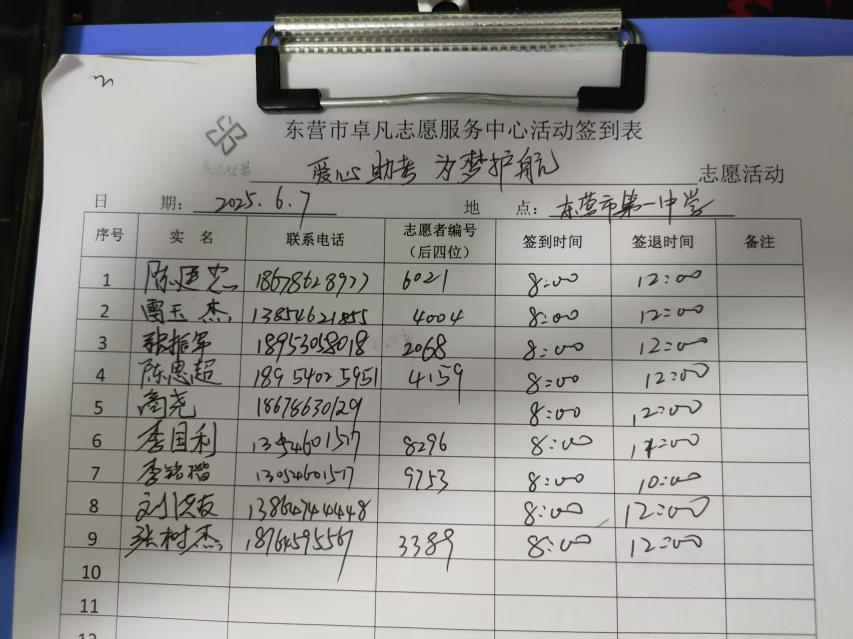 东营市卓凡志愿服务中心活动签到表
爱心助考 为梦护航 志愿活动
日 期: 2025.6.7 地 点: 东营市第一中学
序号 实 名 联系电话 志愿者编号(后四位) 签到时间 签退时间 备注
1 陈 18678628977 6021 8:00 12:00
2 雷玉杰 13854621855 4004 8:00 12:00
3 张振军 18953058018 2068 8:00 12:00
4 陈思超 18954025951 4159 8:00 12:00
5 商尧 18678630129 8:00 12:00
6 李国利 8296 8:00 12:00
7 李 13054601517 9753 8:00 10:00
8 刘 13864744448 8:00 12:00
9 张树杰 18764595567 3389 8:00 12:00
10
11